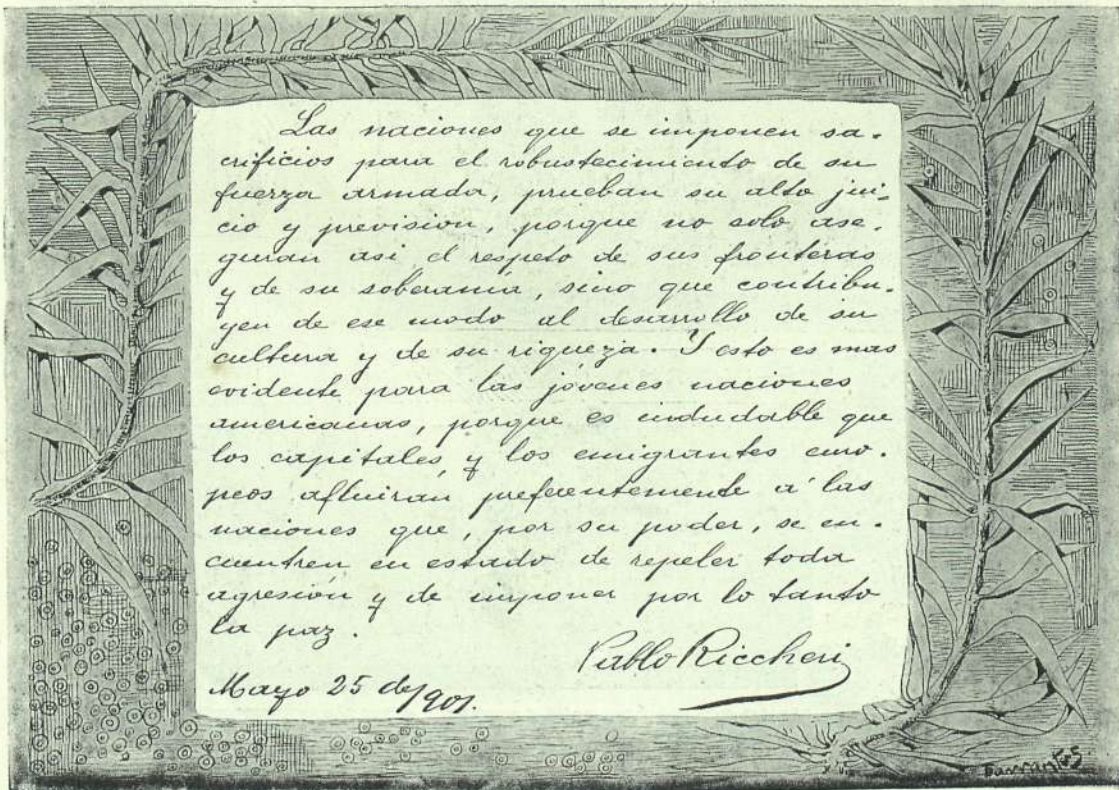 Las naciones que se imponen sa-
crificios para el robustecimiento de su
fuerza armada, prueban su alto jui-
cio y prevision, porque no solo ase-
guran asi el respeto de sus fronteras
y de su soberanía, sino que contribu-
yen de ese modo al desarrollo de su
cultura y de su riqueza. Y esto es mas
evidente para las jóvenes naciones
americanas, porque es indudable que
los capitales y los emigrantes euro-
peos afluiran preferentemente á las
naciones que, por su poder, se en-
cuentren en estado de repeler toda
agresión y de imponer por lo tanto
la paz.
Pablo Riccheri
Mayo 25 de 1901.